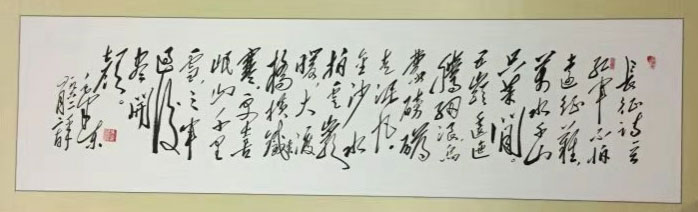 長征詩
紅軍不怕
遠征難,
萬水千山
只等閒。
五嶺逶迤
騰細浪,烏
蒙磅礴
走泥丸。
金沙水
拍雲崖
暖,大渡
橋橫鐵索
寒。更喜
岷山千里
雪,三軍
過後
盡開
顏。
毛澤東